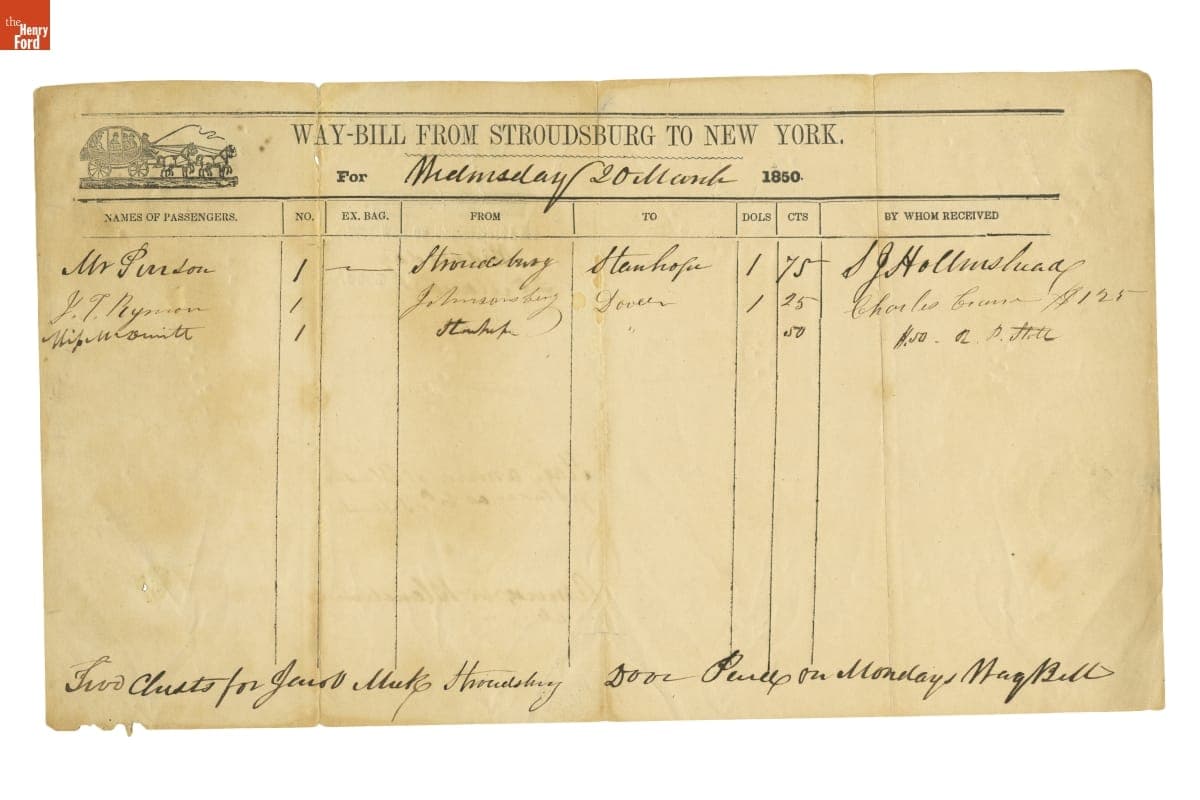 the
Henry
Ford
WAY-BILL FROM STROUDSBURG TO NEW YORK.
For Wednesday 20 March 1850.
NAMES OF PASSENGERS. NO. EX. BAG. FROM TO DOLS CTS BY WHOM RECEIVED
Mr Pinson 1 — Stroudsburg Stanhope 1 75 S J Hollinshead
J. T. Ryman 1 Johnsonsburg Dover 1 25 Charles $1 25
Miss 1 Stanhope " 50 $.50 -
Two Chests for Jacob Stroudsburg Dove on Mondays Way Bill